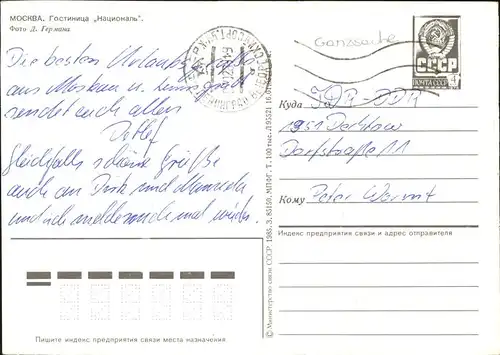 МОСКВА. Гостиница „Националь".
Фото Д. Германа
Die besten Urlaubsgrüße
aus Moskau u. Leningrad
sendet euch allen
Detlef
Gleichfalls schöne Grüße
auch an Dirk und Manuela
und ich melde mich mal wieder.
Пишите индекс предприятия связи места назначения
© Министерство связи СССР. 1985. З.
МПФГ. Т. 100 тыс.
Ganzsache
ПОЧТА СССР
4
СССР
Куда
DDR
1951
Dorfstraße 11
Кому Peter
Индекс предприятия связи и адрес отправителя